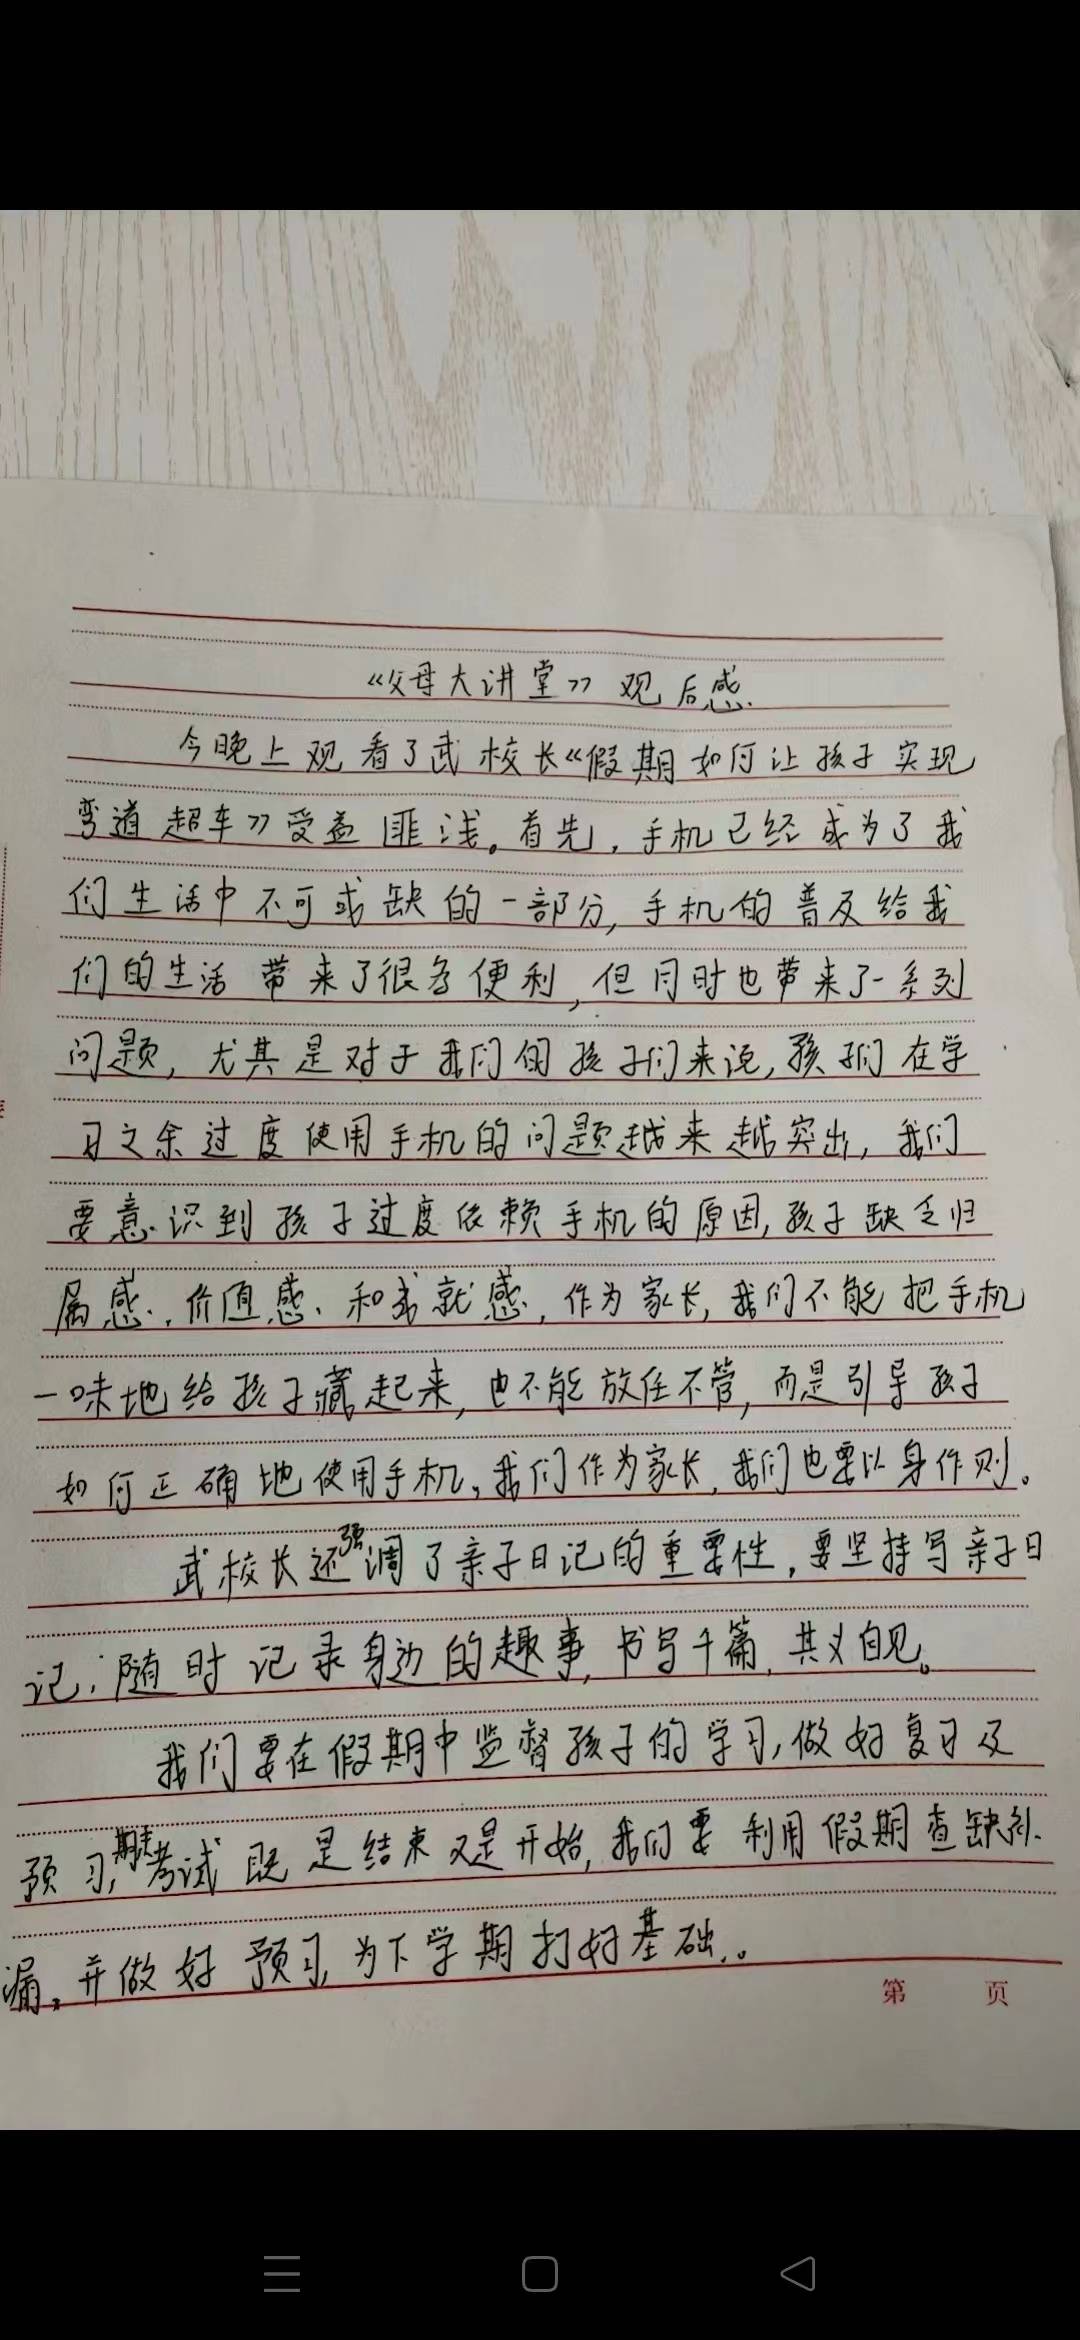 《父母大讲堂》观后感
今晚上观看了武校长《假期如何让孩子实现
弯道超车》受益匪浅。首先，手机已经成为了我
们生活中不可或缺的一部分，手机的普及给我
们的生活带来了很多便利，但同时也带来了一系列
问题，尤其是对于我们的孩子们来说，孩子们在学
习之余过度使用手机的问题越来越突出，我们
要意识到孩子过度依赖手机的原因，孩子缺乏归
属感、价值感、和成就感，作为家长，我们不能把手机
一味地给孩子藏起来，也不能放任不管，而是引导孩子
如何正确地使用手机，我们作为家长，我们也要以身作则。
武校长还强调了亲子日记的重要性，要坚持写亲子日
记，随时记录身边的趣事，书写千篇，其义自见。
我们要在假期中监督孩子的学习，做好复习及
预习，期末考试既是结束又是开始，我们要利用假期查缺补
漏。并做好预习，为下学期打好基础。
第 页